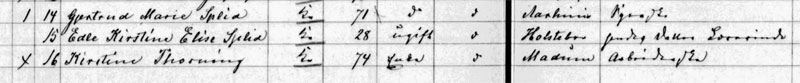 1 14 Gertrud Marie Splid Kv 71 do d Aarhuus
15 Edle Kirstine Elise Splid Kv 28 ugift d Holstebro Datter Lærerinde
x 16 Kirstine Thorning Kv 74 Enke d Madum